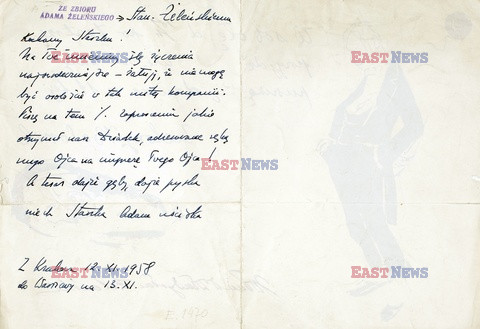 ZE ZBIORU
ADAMA ŻELEŃSKIEGO → Stan. Żeleńskiemu
Kochany Staszku!
Na Toś imieniny ślę życzenia
najserdeczniejsze – żałuję, że nie mogę
być osobiście w tak miłej kompanii.
Piszę na tem zaproszeniu jakie
otrzymał nasz Dziadek, adresowane ręką
mego Ojca na imprezę Twego Ojca!
A teraz dajże gęby, dajże pyska
niech Staszka Adam uściska
Z Krakowa 12.XI.1958
do Warszawy na 13.XI.
E. 1970
EAST NEWS
EAST NEWS
EAST NEWS
EAST NEWS
EAST NEWS